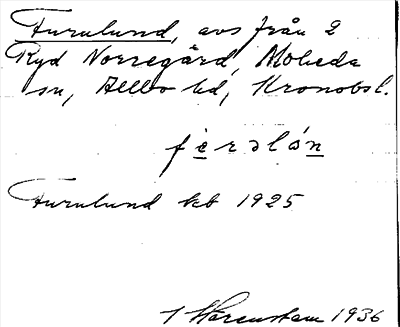 Furulund, avs från 2
Ryd Norregård, Moheda
sn, Allbo hd, Kronobsl.
fèrəlón
Furulund kb 1925
1936